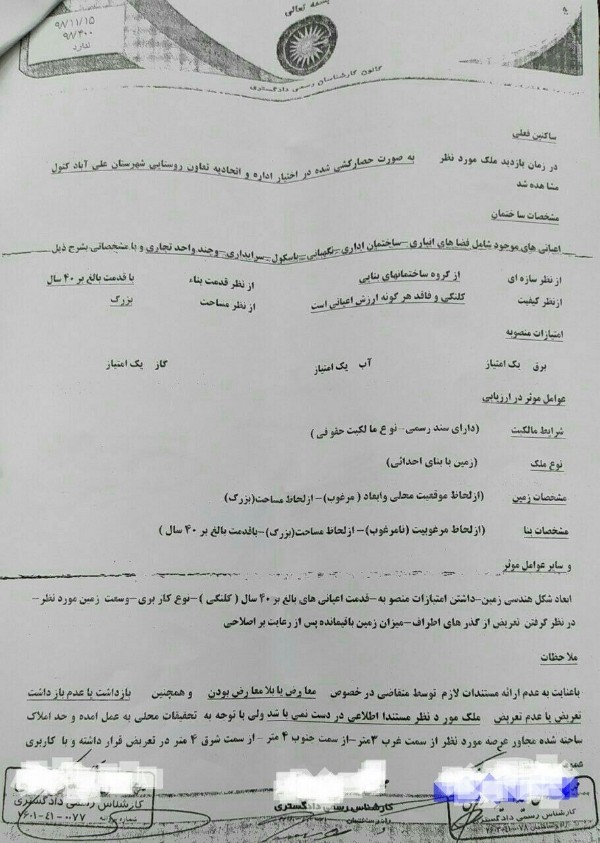 بسمه تعالی
۹۸/۱۱/۱۵
۹۸/۳۰۰
ندارد
کانون کارشناسان رسمی دادگستری
ساکنین فعلی
در زمان بازدید ملک مورد نظر به صورت حصارکشی شده در اختیار اداره و اتحادیه تعاون روستایی شهرستان علی آباد کتول
مشاهده شد
مشخصات ساختمان
اعیانی های موجود شامل فضا های انباری -ساختمان اداری -نگهبانی -باسکول -سرایداری -وچند واحد تجاری و با مشخصاتی بشرح ذیل
از نظر سازه ای از گروه ساختمانهای بنایی از نظر قدمت بناء با قدمت بالغ بر ۴۰ سال
ازنظر کیفیت کلنگی و فاقد هر گونه ارزش اعیانی است از نظر مساحت بزرگ
امتیازات منصوبه
برق یک امتیاز آب یک امتیاز گاز یک امتیاز
عوامل موثر در ارزیابی
شرایط مالکیت (دارای سند رسمی- نوع مالکیت حقوقی)
نوع ملک (زمین با بنای احداثی)
مشخصات زمین (ازلحاظ موقعیت محلی وابعاد ( مرغوب)- ازلحاظ مساحت(بزرگ)
مشخصات بنا (ازلحاظ مرغوبیت (نامرغوب)- ازلحاظ مساحت(بزرگ)-باقدمت بالغ بر ۴۰ سال )
و سایر عوامل موثر
ابعاد شکل هندسی زمین-داشتن امتیازات منصوبه -قدمت اعیانی های بالغ بر ۴۰ سال ( کلنگی )-نوع کاربری-وسعت زمین مورد نظر-
در نظر گرفتن تعریض از گذر های اطراف-میزان زمین باقیمانده پس از رعایت بر اصلاحی
ملاحظات
باعنایت به عدم ارائه مستندات لازم توسط متقاضی در خصوص معارض یا بلا معارض بودن و همچنین بازداشت یا عدم بازداشت
تعریض یا عدم تعریض ملک مورد نظر مستندا اطلاعی در دست نمی باشد ولی با توجه به تحقیقات محلی به عمل امده و حد املاک
ساخته شده مجاور عرصه مورد نظر از سمت غرب ۳متر-از سمت جنوب ۴ متر - از سمت شرق ۴ متر در تعریض قرار داشته و با کاربری
کارشناس رسمی دادگستری
کارشناس رسمی دادگستری
کارشناس رسمی دادگستری